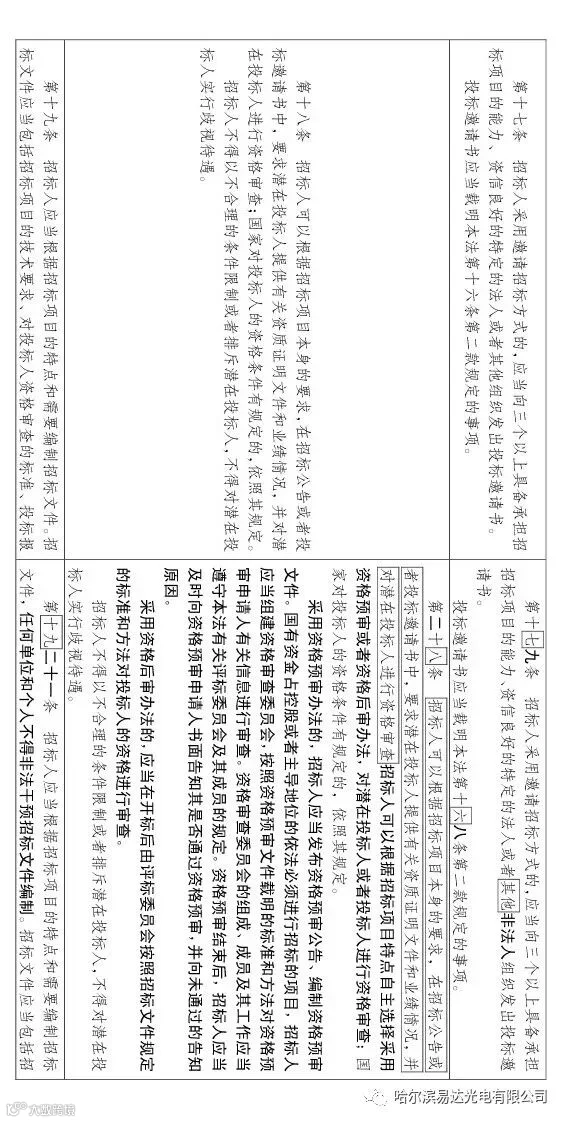 第十七条 招标人采用邀请招标方式的，应当向三个以上具备承担招
标项目的能力、资信良好的特定的法人或者其他组织发出投标邀请书。
投标邀请书应当载明本法第十六条第二款规定的事项。
第十七九条 招标人采用邀请招标方式的，应当向三个以上具备承担
招标项目的能力、资信良好的特定的法人或者其他非法人组织发出投标邀
请书。
投标邀请书应当载明本法第十六八条第二款规定的事项。
第十八条 招标人可以根据招标项目本身的要求，在招标公告或者投
标邀请书中，要求潜在投标人提供有关资质证明文件和业绩情况，并对潜
在投标人进行资格审查；国家对投标人的资格条件有规定的，依照其规定。
招标人不得以不合理的条件限制或者排斥潜在投标人，不得对潜在投
标人实行歧视待遇。
第二十八条 招标人可以根据招标项目本身的要求，在招标公告或
者投标邀请书中，要求潜在投标人提供有关资质证明文件和业绩情况，并
对潜在投标人进行资格审查招标人可以根据招标项目特点自主选择采用
资格预审或者资格后审办法，对潜在投标人或者投标人进行资格审查；国
家对投标人的资格条件有规定的，依照其规定。
采用资格预审办法的，招标人应当发布资格预审公告、编制资格预审
文件。国有资金占控股或者主导地位的依法必须进行招标的项目，招标人
应当组建资格审查委员会，按照资格预审文件载明的标准和方法对资格预
审申请人有关信息进行审查。资格审查委员会的组成、成员及其工作应当
遵守本法有关评标委员会及其成员的规定。资格预审结束后，招标人应当
及时向资格预审申请人书面告知其是否通过资格预审，并向未通过的告知
原因。
采用资格后审办法的，应当在开标后由评标委员会按照招标文件规定
的标准和方法对投标人的资格进行审查。
招标人不得以不合理的条件限制或者排斥潜在投标人，不得对潜在投
标人实行歧视待遇。
第十九条 招标人应当根据招标项目的特点和需要编制招标文件。招
标文件应当包括招标项目的技术要求、对投标人资格审查的标准、投标报
第十九二十一条 招标人应当根据招标项目的特点和需要编制招标
文件，任何单位和个人不得非法干预招标文件编制。招标文件应当包括招
哈尔滨易达光电有限公司